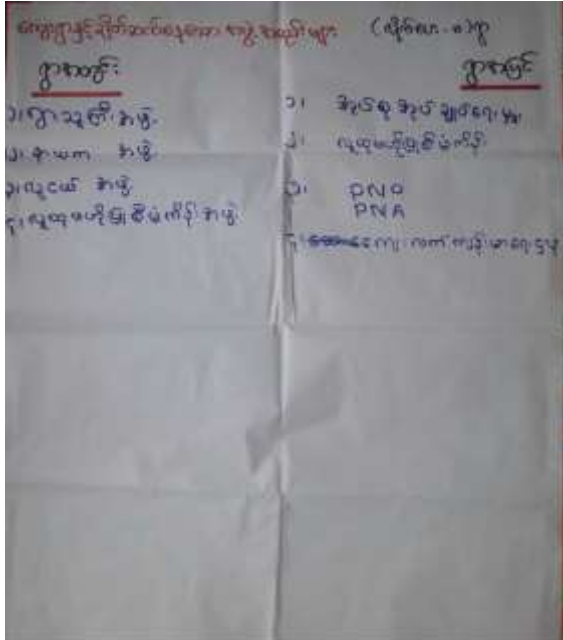 ကျေးရွာနှင့်ချိတ်ဆက်နေသော အဖွဲ့အစည်းများ ( ) ရွာ
ရွာအတွင်း
၁။ ရွာသူကြီးအဖွဲ့
၂။ နာယက အဖွဲ့
၃။ လူငယ် အဖွဲ့
၄။ လူထုဗဟိုပြုစီမံကိန်းအဖွဲ့
ရွာအပြင်
၁။ အုပ်စု အုပ်ချုပ်ရေးမှူး
၂။ လူထုဗဟိုပြုစီမံကိန်း
၃။ PNO
PNA
၄။ ကျေးလက်ကျန်းမာရေးဌာန